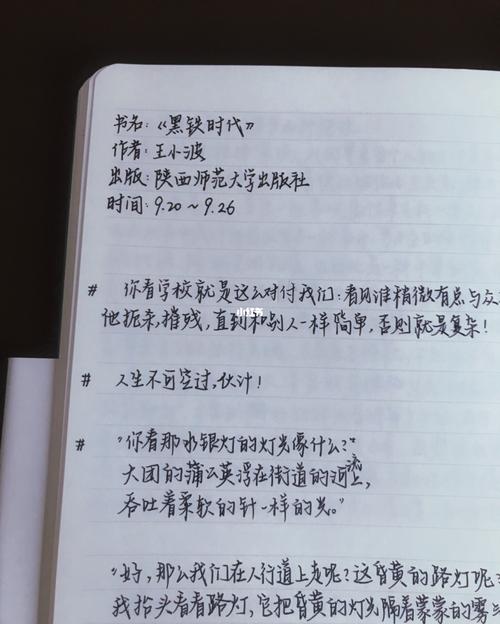 书名:《黑铁时代》
作者:王小波
出版:陕西师范大学出版社
时间:9.20~9.26
# 你看学校就是这么对付我们:看见谁稍微有点与众
他扼来,摧残,直到和别人一样简单,否则就是复杂!
小红书
# 人生不可空过,伙计!
# "你看那水银灯的灯光像什么?"
大团的蒲公英浮在街道的河流上,
吞吐着柔软的针一样的光。"
"好,那么我们在人行道上走呢?这昏黄的路灯呢?
我抬头看看路灯,它把昏黄的灯光隔着蒙蒙的雾气